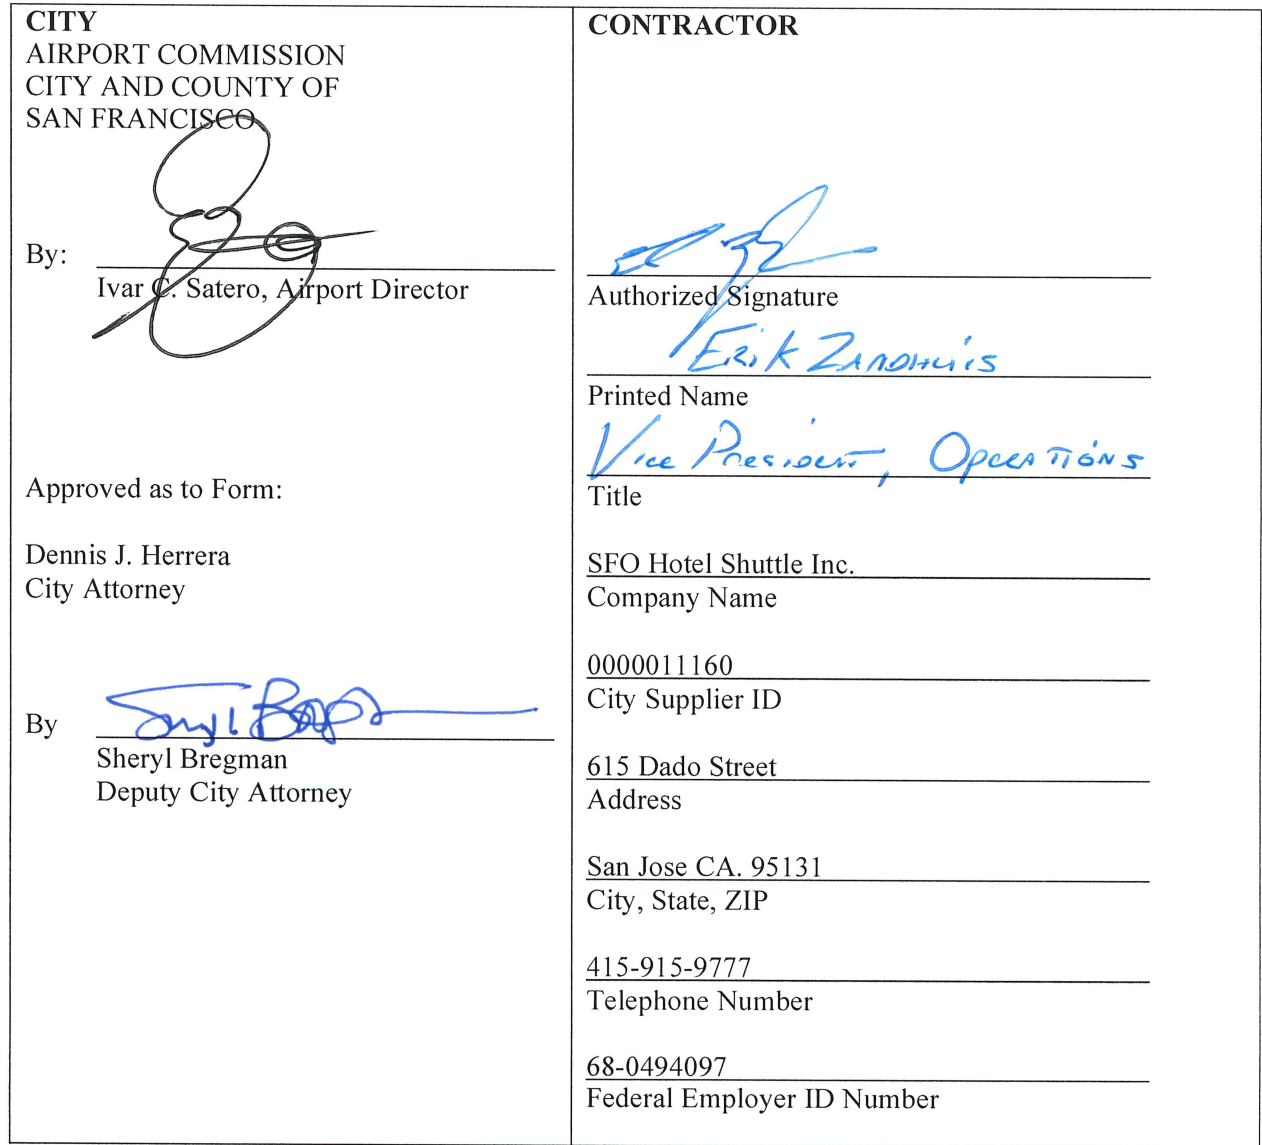 CITY
AIRPORT COMMISSION
CITY AND COUNTY OF
SAN FRANCISCO
By:
Ivar C. Satero, Airport Director
Approved as to Form:
Dennis J. Herrera
City Attorney
By
Sheryl Bregman
Deputy City Attorney
CONTRACTOR
Authorized Signature
Erik Zandhuis
Printed Name
Vice President, Operations
Title
SFO Hotel Shuttle Inc.
Company Name
0000011160
City Supplier ID
615 Dado Street
Address
San Jose CA. 95131
City, State, ZIP
415-915-9777
Telephone Number
68-0494097
Federal Employer ID Number